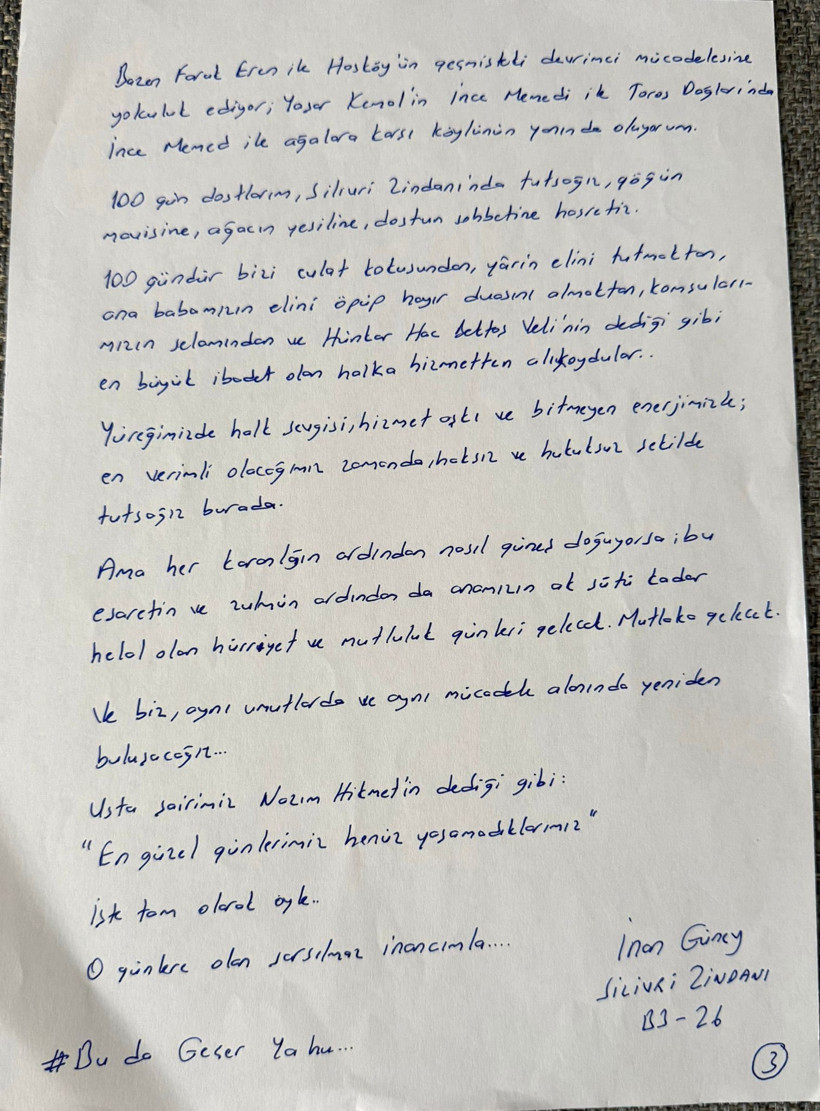 Bazen Faruk Eren ile Hasköy'ün geçmişteki devrimci mücadelesine
yolculuk ediyor; Yaşar Kemal'in İnce Memedi ile Toros Dağları'nda
İnce Memed ile ağalara karşı köylünün yanında oluyorum.
100 gün dostlarım, Silivri Zindanı'nda tutsağız, göğün
mavisine, ağacın yeşiline, dostun sohbetine hasretiz.
100 gündür bizi evlat kokusundan, yârin elini tutmaktan,
ana babamızın elini öpüp hayır duasını almaktan, komşuları-
mızın selamından ve Hünkar Hacı Bektaş Veli'nin dediği gibi
en büyük ibadet olan halka hizmetten alıkoydular..
Yüreğimizde halk sevgisi, hizmet aşkı ve bitmeyen enerjimizle;
en verimli olacağımız zamanda, haksız ve hukuksuz şekilde
tutsağız burada.
Ama her karanlığın ardından nasıl güneş doğuyorsa; bu
esaretin ve zulmün ardından da anamızın ak sütü kadar
helal olan hürriyet ve mutluluk günleri gelecek. Mutlaka gelecek.
Ve biz, aynı umutlarda ve aynı mücadele alanında yeniden
buluşacağız...
Usta şairimiz Nazım Hikmet'in dediği gibi:
"En güzel günlerimiz henüz yaşamadıklarımız"
İşte tam olarak öyle..
O günlere olan sarsılmaz inancımla....
İnan Güney
SİLİVRİ ZİNDANI
B3-26
#Bu da Geçer Ya hu...
3